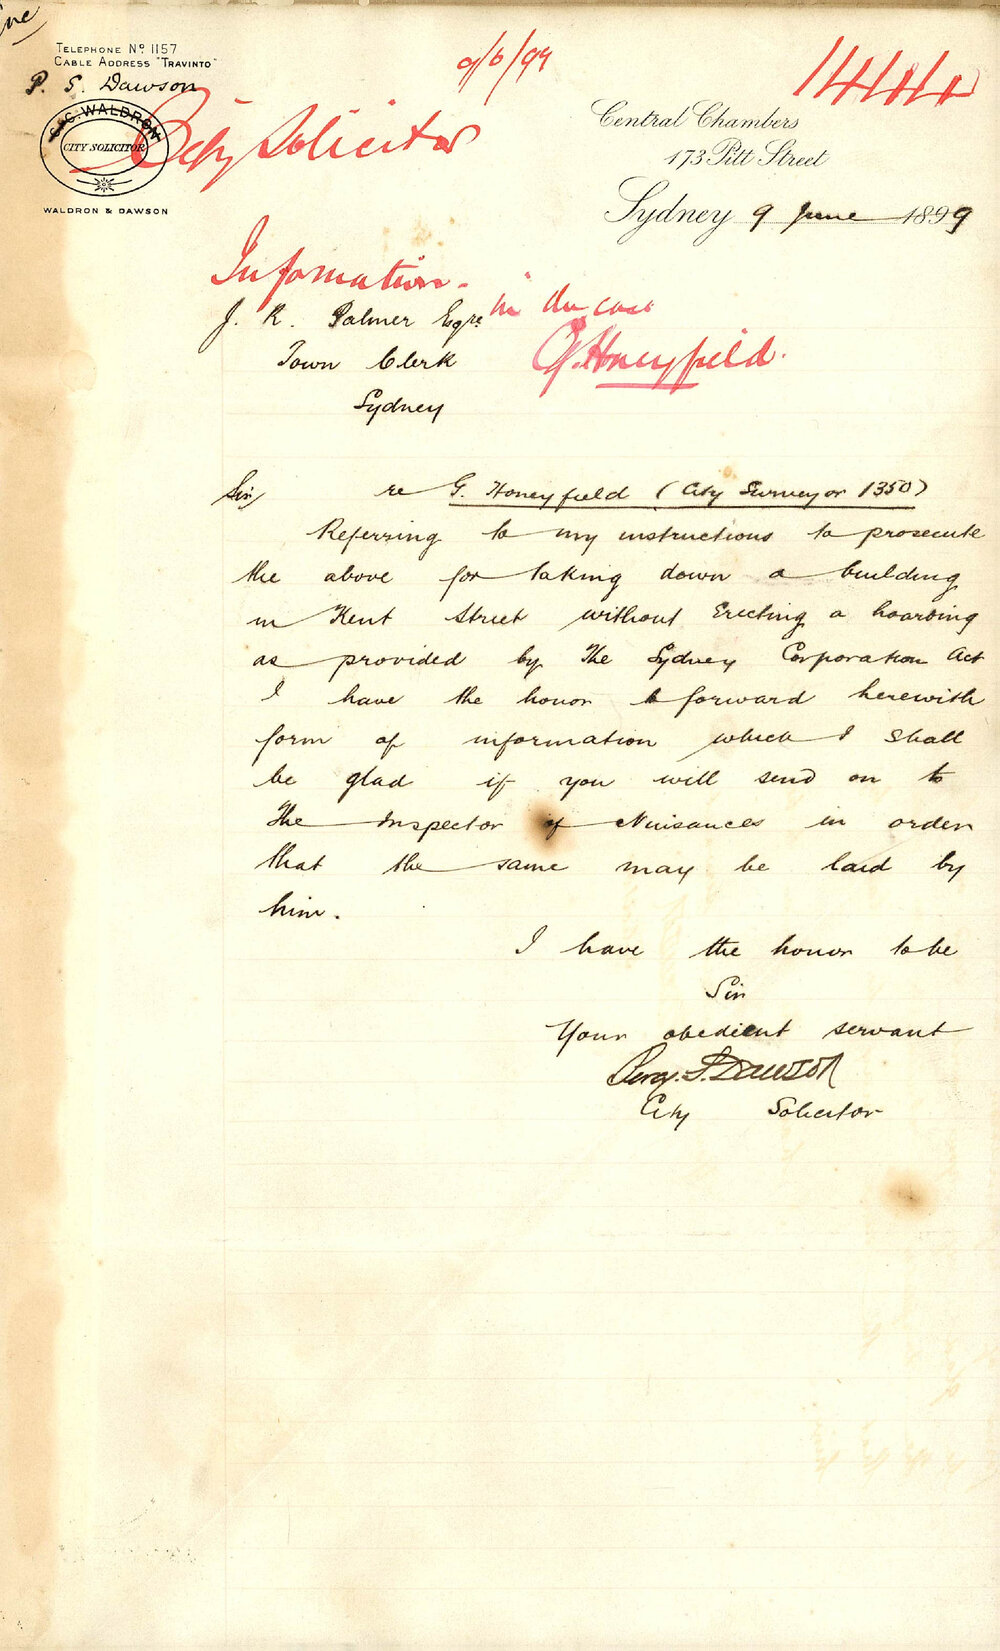 Telephone No 1157
Cable Address "Travinto"
P. S. Dawson
C. G. WALDRON
CITY SOLICITOR
WALDRON & DAWSON
9/6/99
1444
City Solicitor
Central Chambers
173 Pitt Street
Sydney 9 June 1899
Information.
in the case
G. Honeyfield.
J. R. Palmer Esqre
Town Clerk
Sydney
Sir re G. Honeyfield (City Surveyor 1350)
Referring to my instructions to prosecute
the above for taking down a building
in Kent Street without Erecting a hoarding
as provided by The Sydney Corporation Act
I have the honor to forward herewith
form of information which I shall
be glad if you will send on to
The Inspector of Nuisances in order
that the same may be laid by
him.
I have the honor to be
Sir
Your obedient servant
Percy. S. Dawson
City Solicitor